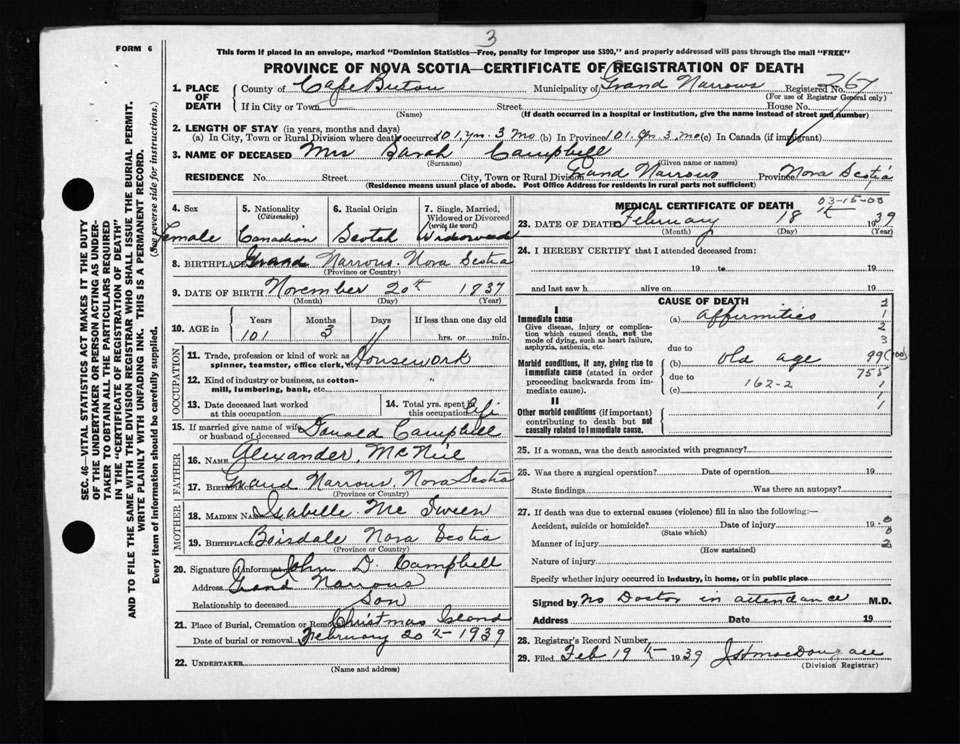 3
FORM 6
This form if placed in an envelope, marked "Dominion Statistics—Free, penalty for improper use $300," and properly addressed will pass through the mail "FREE"
PROVINCE OF NOVA SCOTIA—CERTIFICATE OF REGISTRATION OF DEATH
1. PLACE OF DEATH
County of Cape Breton Municipality of Grand Narrows Registered No. 767
(For use of Registrar General only)
If in City or Town Street House No.
(Name) (If death occurred in a hospital or institution, give the name instead of street and number)
2. LENGTH OF STAY (in years, months and days)
(a) In City, Town or Rural Division where death occurred 101 yrs. 3 mo (b) In Province 101 yrs. 3 mo (c) In Canada (if immigrant)
3. NAME OF DECEASED Mrs Sarah Campbell
(Surname) (Given name or names)
RESIDENCE No. Street City, Town or Rural Division Grand Narrows Province Nova Scotia
(Residence means usual place of abode. Post Office Address for residents in rural parts not sufficient)
4. Sex 5. Nationality (Citizenship) 6. Racial Origin 7. Single, Married, Widowed or Divorced (write the word)
Female Canadian Scotch Widowed
8. BIRTHPLACE Grand Narrows. Nova Scotia
(Province or Country)
9. DATE OF BIRTH November 20th 1837
(Month) (Day) (Year)
10. AGE in Years Months Days If less than one day old
101 3 hrs. or min.
OCCUPATION
11. Trade, profession or kind of work as spinner, teamster, office clerk, etc. Housework
12. Kind of industry or business, as cotton-mill, lumbering, bank, etc. "
13. Date deceased last worked at this occupation
14. Total yrs. spent in this occupation Life
15. If married give name of wife or husband of deceased Donald Campbell
FATHER
16. NAME Alexander McNeil
17. BIRTHPLACE Grand Narrows, Nova Scotia
(Province or Country)
MOTHER
18. MAIDEN NAME Isabelle Mc Sween
19. BIRTHPLACE Boisdale Nova Scotia
(Province or Country)
20. Signature of informant John D. Campbell
Address Grand Narrows
Relationship to deceased Son
21. Place of Burial, Cremation or Removal Christmas Island
Date of burial or removal February 20th 1939
22. UNDERTAKER
(Name and address)
MEDICAL CERTIFICATE OF DEATH
03-15-00
23. DATE OF DEATH February 18th 1939
(Month) (Day) (Year)
24. I HEREBY CERTIFY that I attended deceased from:
19 to 19
and last saw h alive on 19
CAUSE OF DEATH
I
Immediate cause (a) affirmities
Give disease, injury or complication which caused death, not the mode of dying, such as heart failure, asphyxia, asthenia, etc.
due to
Morbid conditions, if any, giving rise to immediate cause (stated in order proceeding backwards from immediate cause).
(b) old age
due to 162-2
(c)
II
Other morbid conditions (if important) contributing to death but not causally related to immediate cause.
1
2
3
99
755
1
1
25. If a woman, was the death associated with pregnancy?
26. Was there a surgical operation? Date of operation 19
State findings Was there an autopsy?
27. If death was due to external causes (violence) fill in also the following:—
Accident, suicide or homicide? Date of injury 19
(State which)
Manner of injury
(How sustained)
Nature of injury
Specify whether injury occurred in industry, in home, or in public place
Signed by No Doctor in attendance M.D.
Address Date 19
28. Registrar's Record Number
29. Filed Feb 19th 1939 J H MacDougall
(Division Registrar)
SEC. 46—VITAL STATISTICS ACT MAKES IT THE DUTY
OF THE UNDERTAKER OR PERSON ACTING AS UNDER-
TAKER TO OBTAIN ALL THE PARTICULARS REQUIRED
IN THE "CERTIFICATE OF REGISTRATION OF DEATH"
AND TO FILE THE SAME WITH THE DIVISION REGISTRAR WHO SHALL ISSUE THE BURIAL PERMIT.
WRITE PLAINLY WITH UNFADING INK. THIS IS A PERMANENT RECORD.
Every item of information should be carefully supplied. (See reverse side for instructions.)